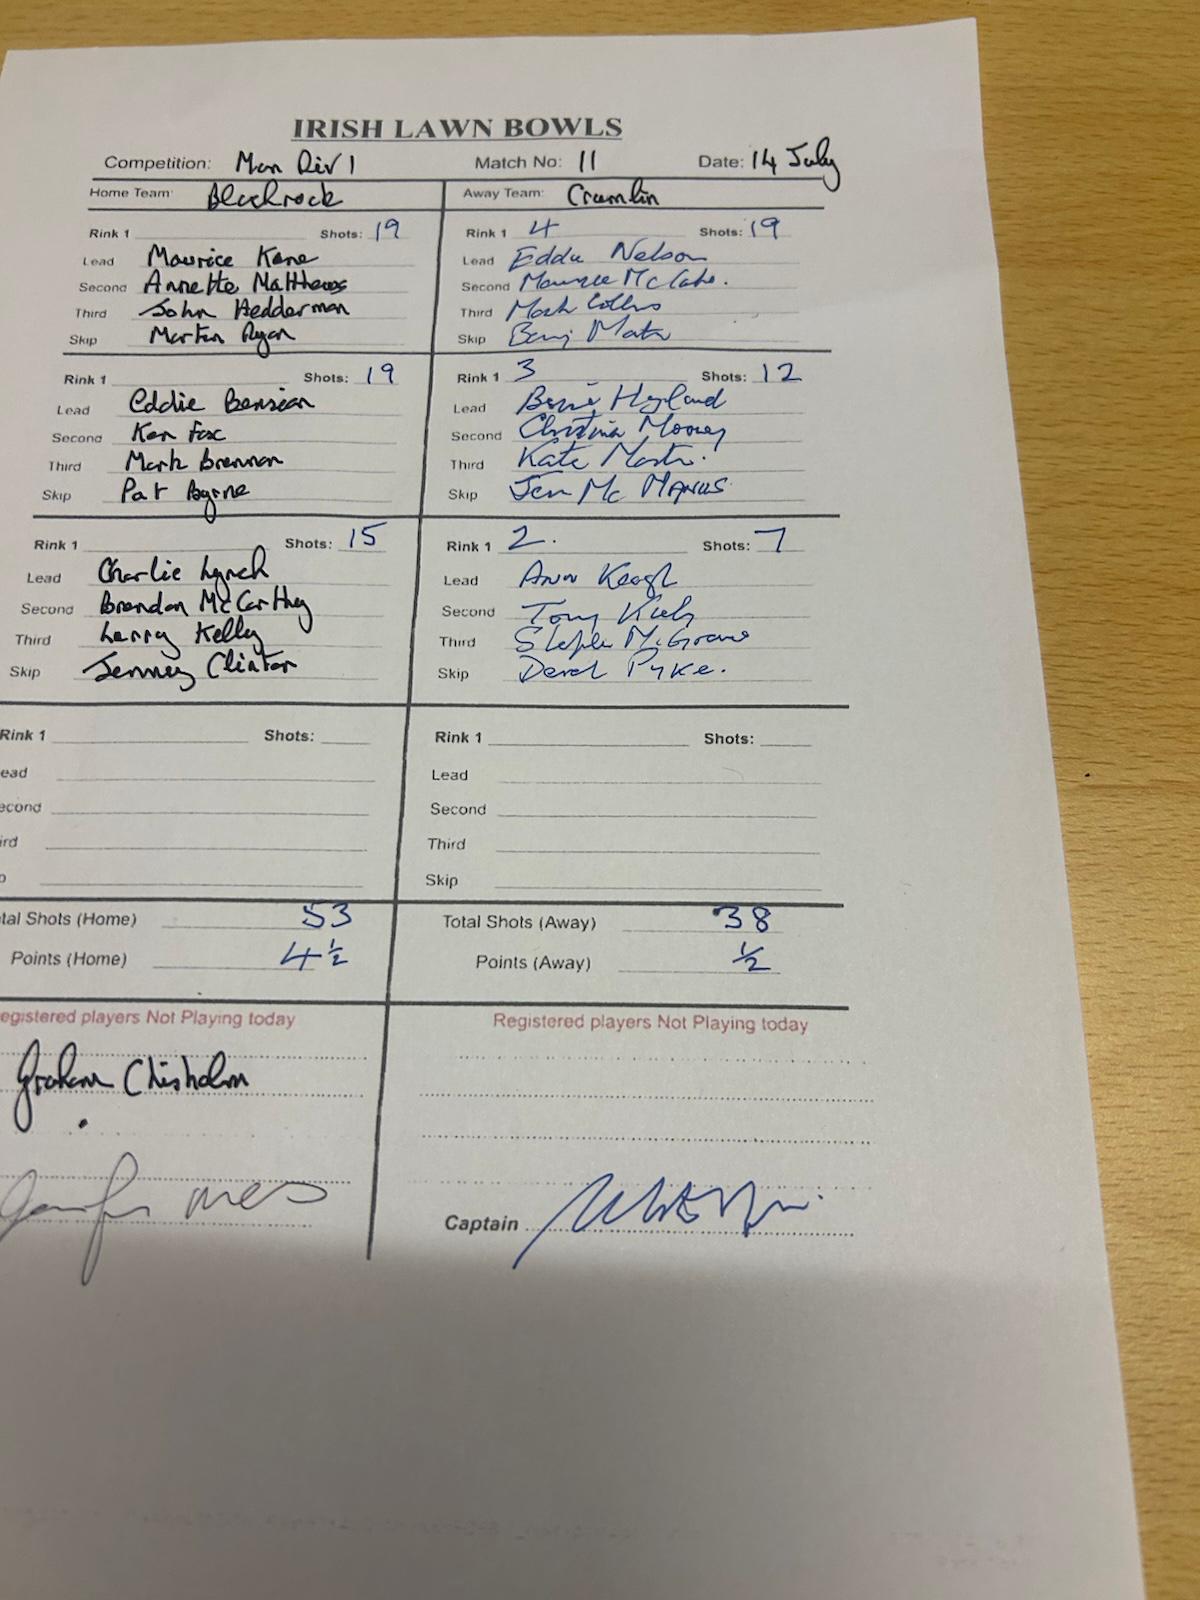 IRISH LAWN BOWLS
Competition: Mon Div 1 Match No: 11 Date: 14 July
Home Team: Blackrock Away Team: Crumlin
Rink 1 Shots: 19 Rink 1 4 Shots: 19
Lead Maurice Kane Lead Eddie Nelson
Second Annette Matthews Second Maurice McCabe.
Third John Hedderman Third Mark Collins
Skip Martin Ryan Skip
Rink 1 Shots: 19 Rink 1 3 Shots: 12
Lead Eddie Lead Hyland
Second Ken Fox Second Christina Mooney
Third Mark Brennan Third Kate
Skip Pat Byrne Skip Jen Mc Manus
Rink 1 Shots: 15 Rink 1 2. Shots: 7
Lead Charlie Lynch Lead Ann Keogh
Second Brendan McCarthy Second Tony Kiely
Third Larry Kelly Third McGrane
Skip Clinton Skip Derek Pyke.
Rink 1 Shots: Rink 1 Shots:
ead Lead
econd Second
ird Third
p Skip
tal Shots (Home) 53 Total Shots (Away) 38
Points (Home) 4 ½ Points (Away) ½
egistered players Not Playing today Registered players Not Playing today
Graham Chisholm
Captain